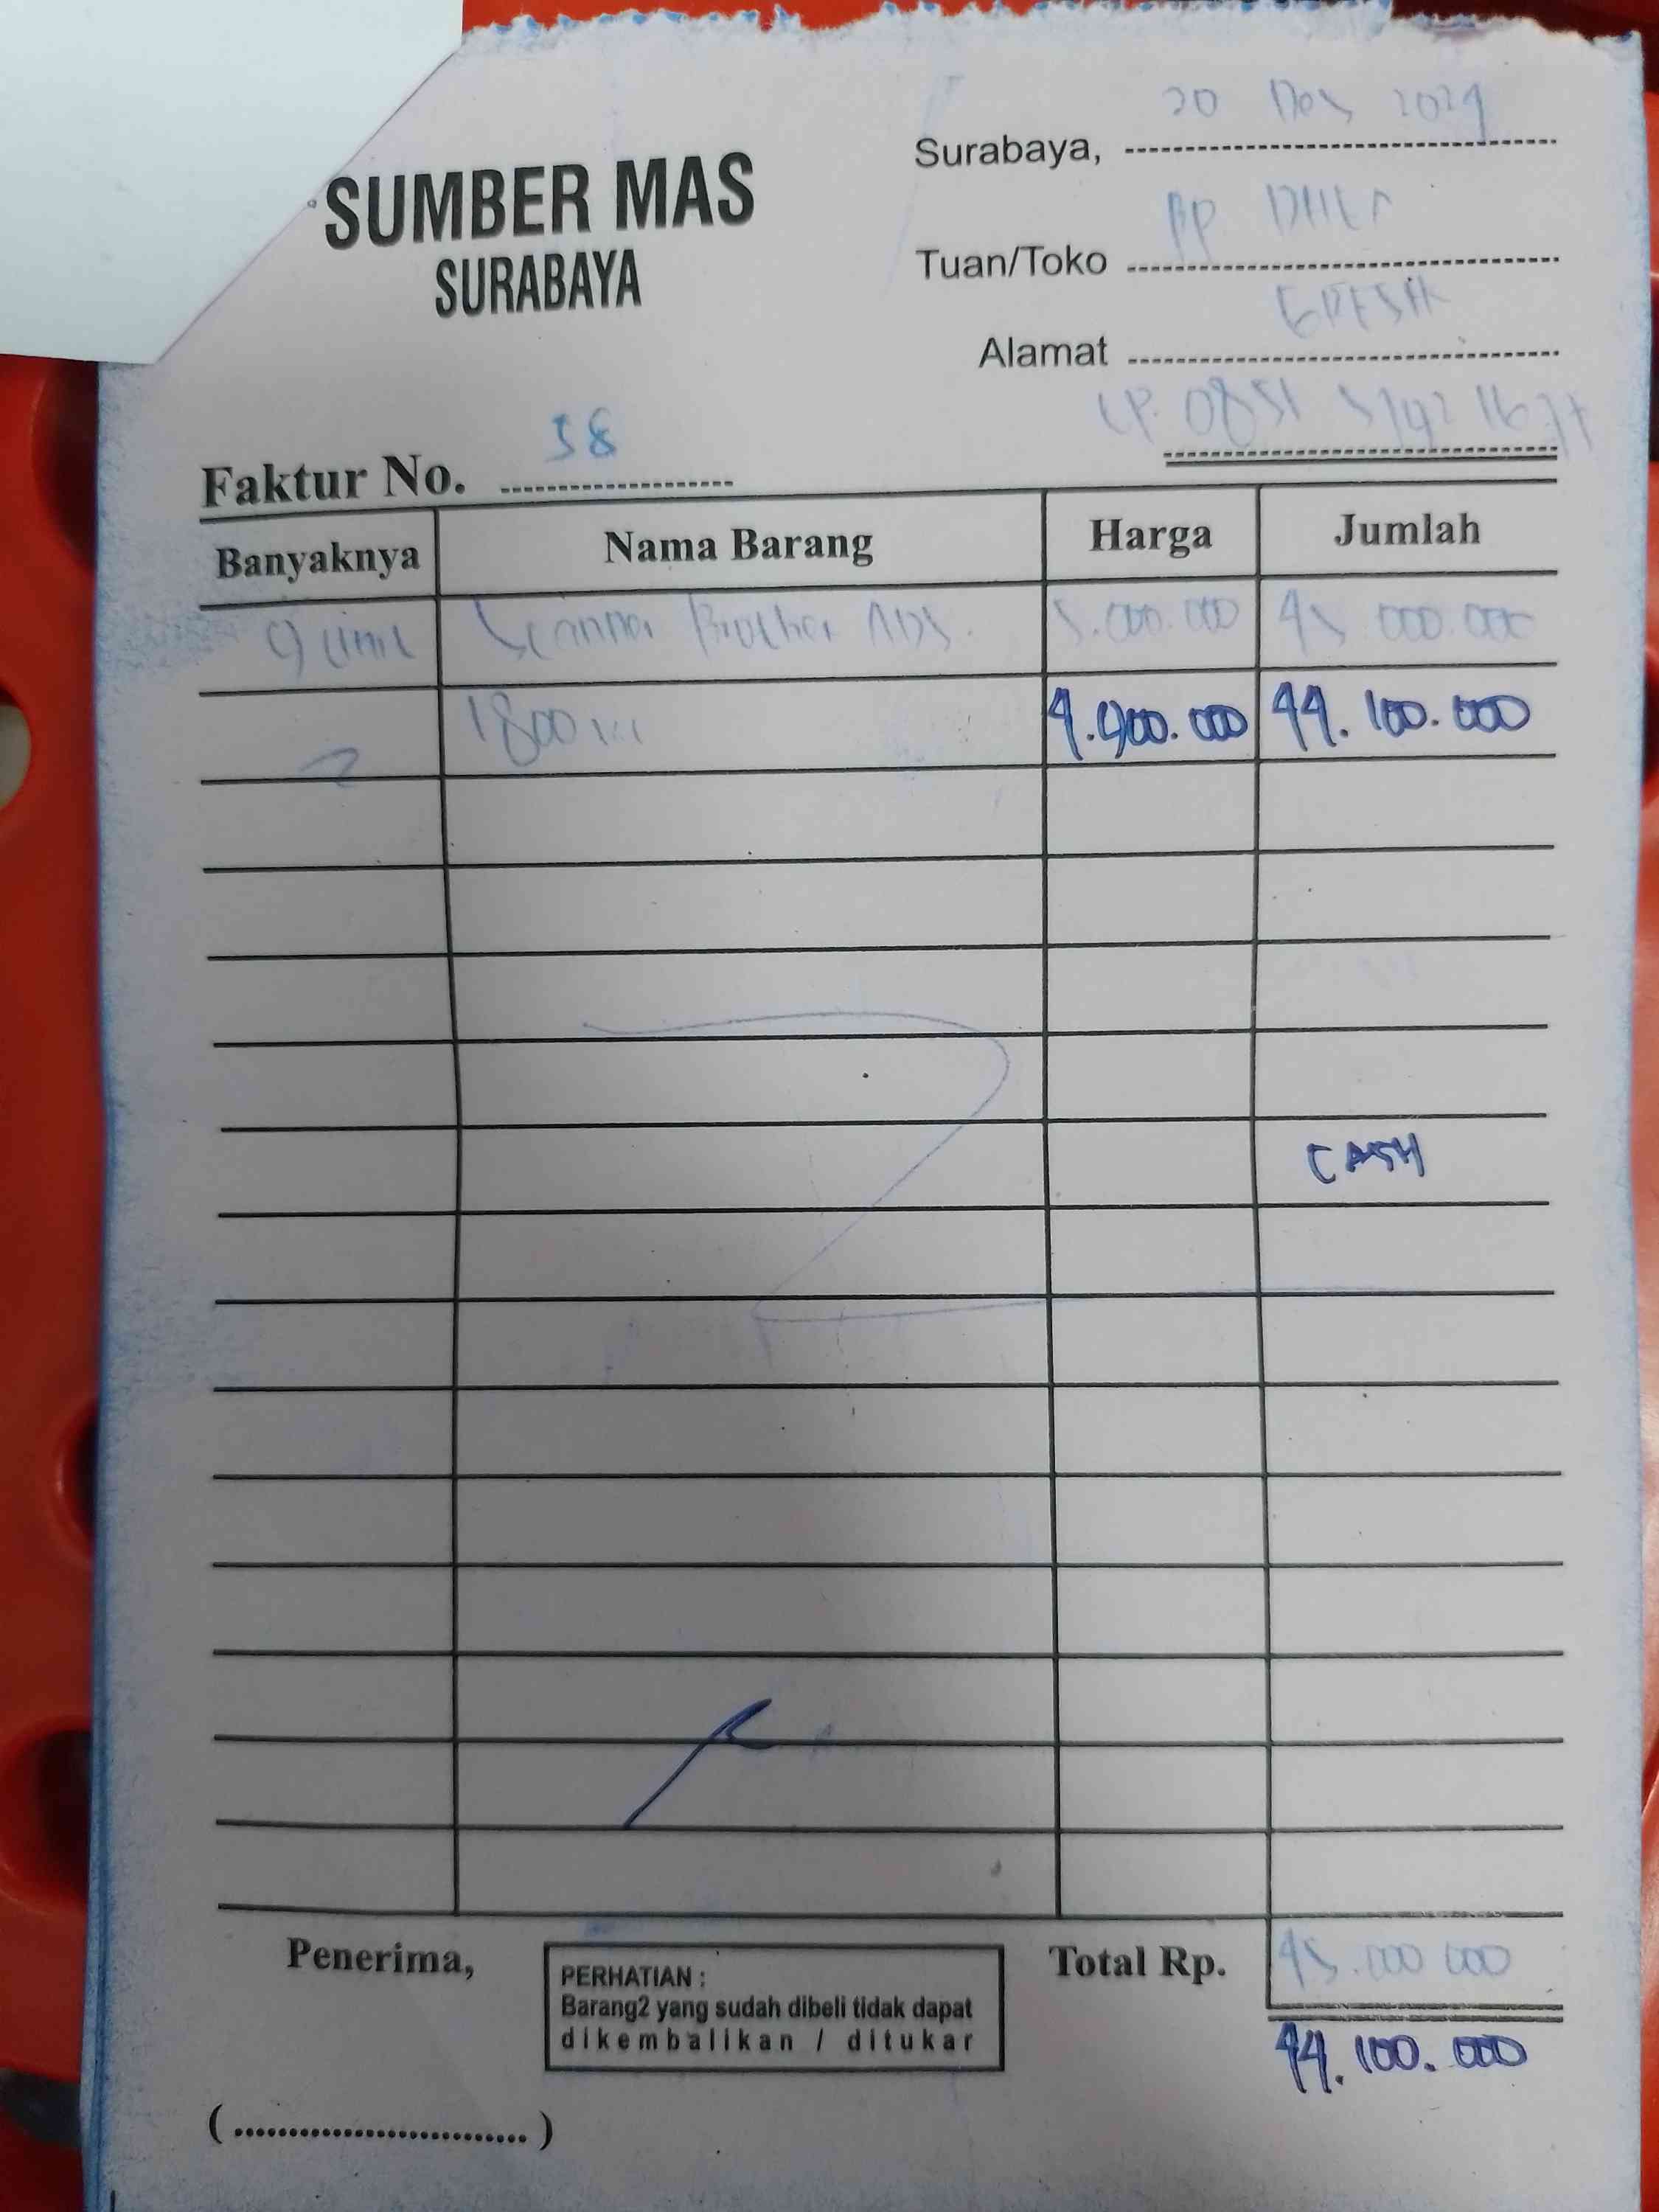 SUMBER MAS
SURABAYA
Surabaya, 20 Des 2024
Tuan/Toko BP.
Alamat GRESIK
CP. 0851
Faktur No. 38
Banyaknya Nama Barang Harga Jumlah
9 unit Scanner Brother ADS. 5.000.000 45 000.000
1800 4.900.000 44.100.000
CASH
Penerima,
PERHATIAN :
Barang2 yang sudah dibeli tidak dapat
dikembalikan / ditukar
Total Rp. 45.000 000
44.100.000
(............................)